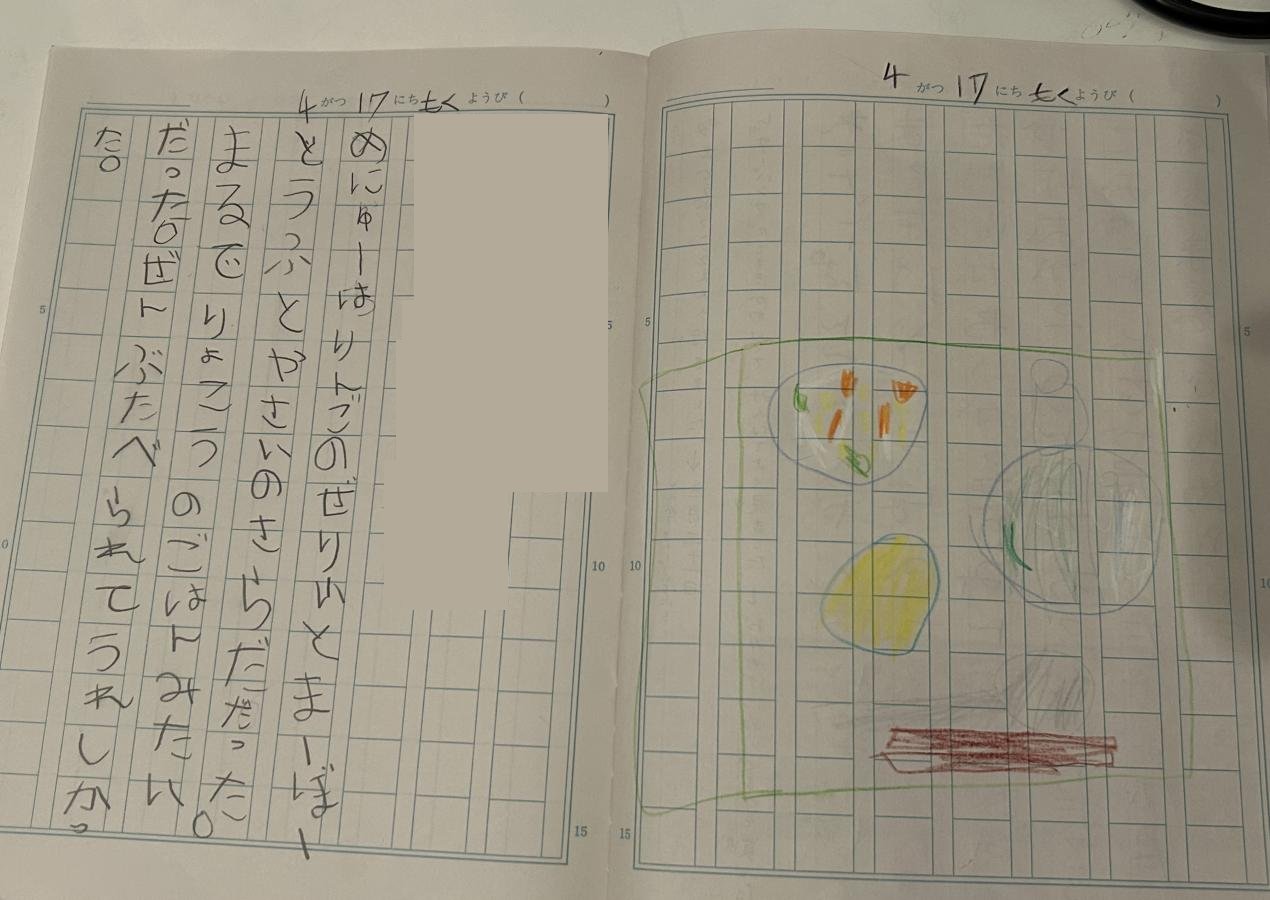 4がつ17にちもくようび（　　）
めにゅーはりんごのぜりいとまーぼー
とうふとやさいのさらだだった。
まるでりょこうのごはんみたい
だった。ぜんぶたべられてうれしかっ
た。
5
10
15
4がつ17にちもくようび（　　）
5
10
15